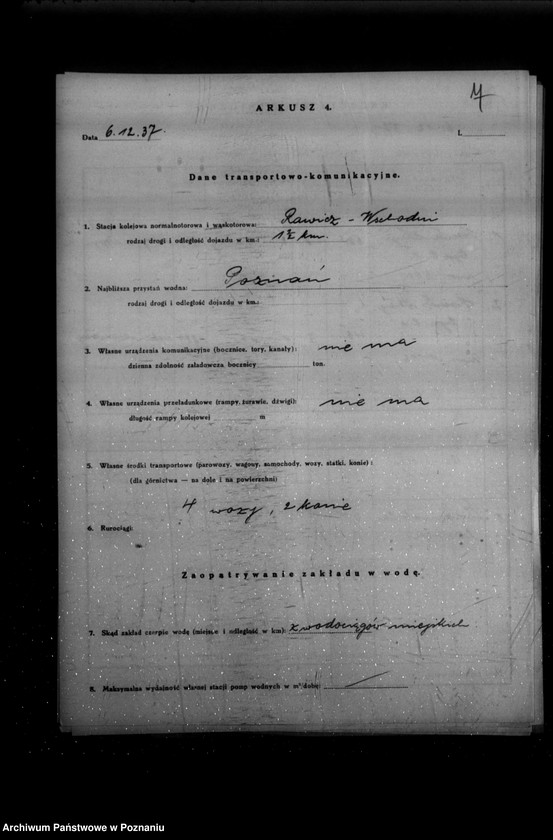 ARKUSZ 4.
Data 6.12.37. L.
Dane transportowo-komunikacyjne.
1. Stacja kolejowa normalnotorowa i wąskotorowa: Rawicz - Wschodni
rodzaj drogi i odległość dojazdu w km.: 1½ km.
2. Najbliższa przystań wodna: Poznań
rodzaj drogi i odległość dojazdu w km.:
3. Własne urządzenia komunikacyjne (bocznice, tory, kanały): nie ma
dzienna zdolność załadowcza bocznicy ton.
4. Własne urządzenia przeładunkowe (rampy, żurawie, dźwigi): nie ma
długość rampy kolejowej m
5. Własne środki transportowe (parowozy, wagony, samochody, wozy, statki, konie):
(dla górnictwa — na dole i na powierzchni)
4 wozy, 2 konie
6. Rurociągi:
Zaopatrywanie zakładu w wodę.
7. Skąd zakład czerpie wodę (miejsce i odległość w km): z wodociągów miejskich
8. Maksymalna wydajność własnej stacji pomp wodnych w m³/dobę:
Archiwum Państwowe w Poznaniu